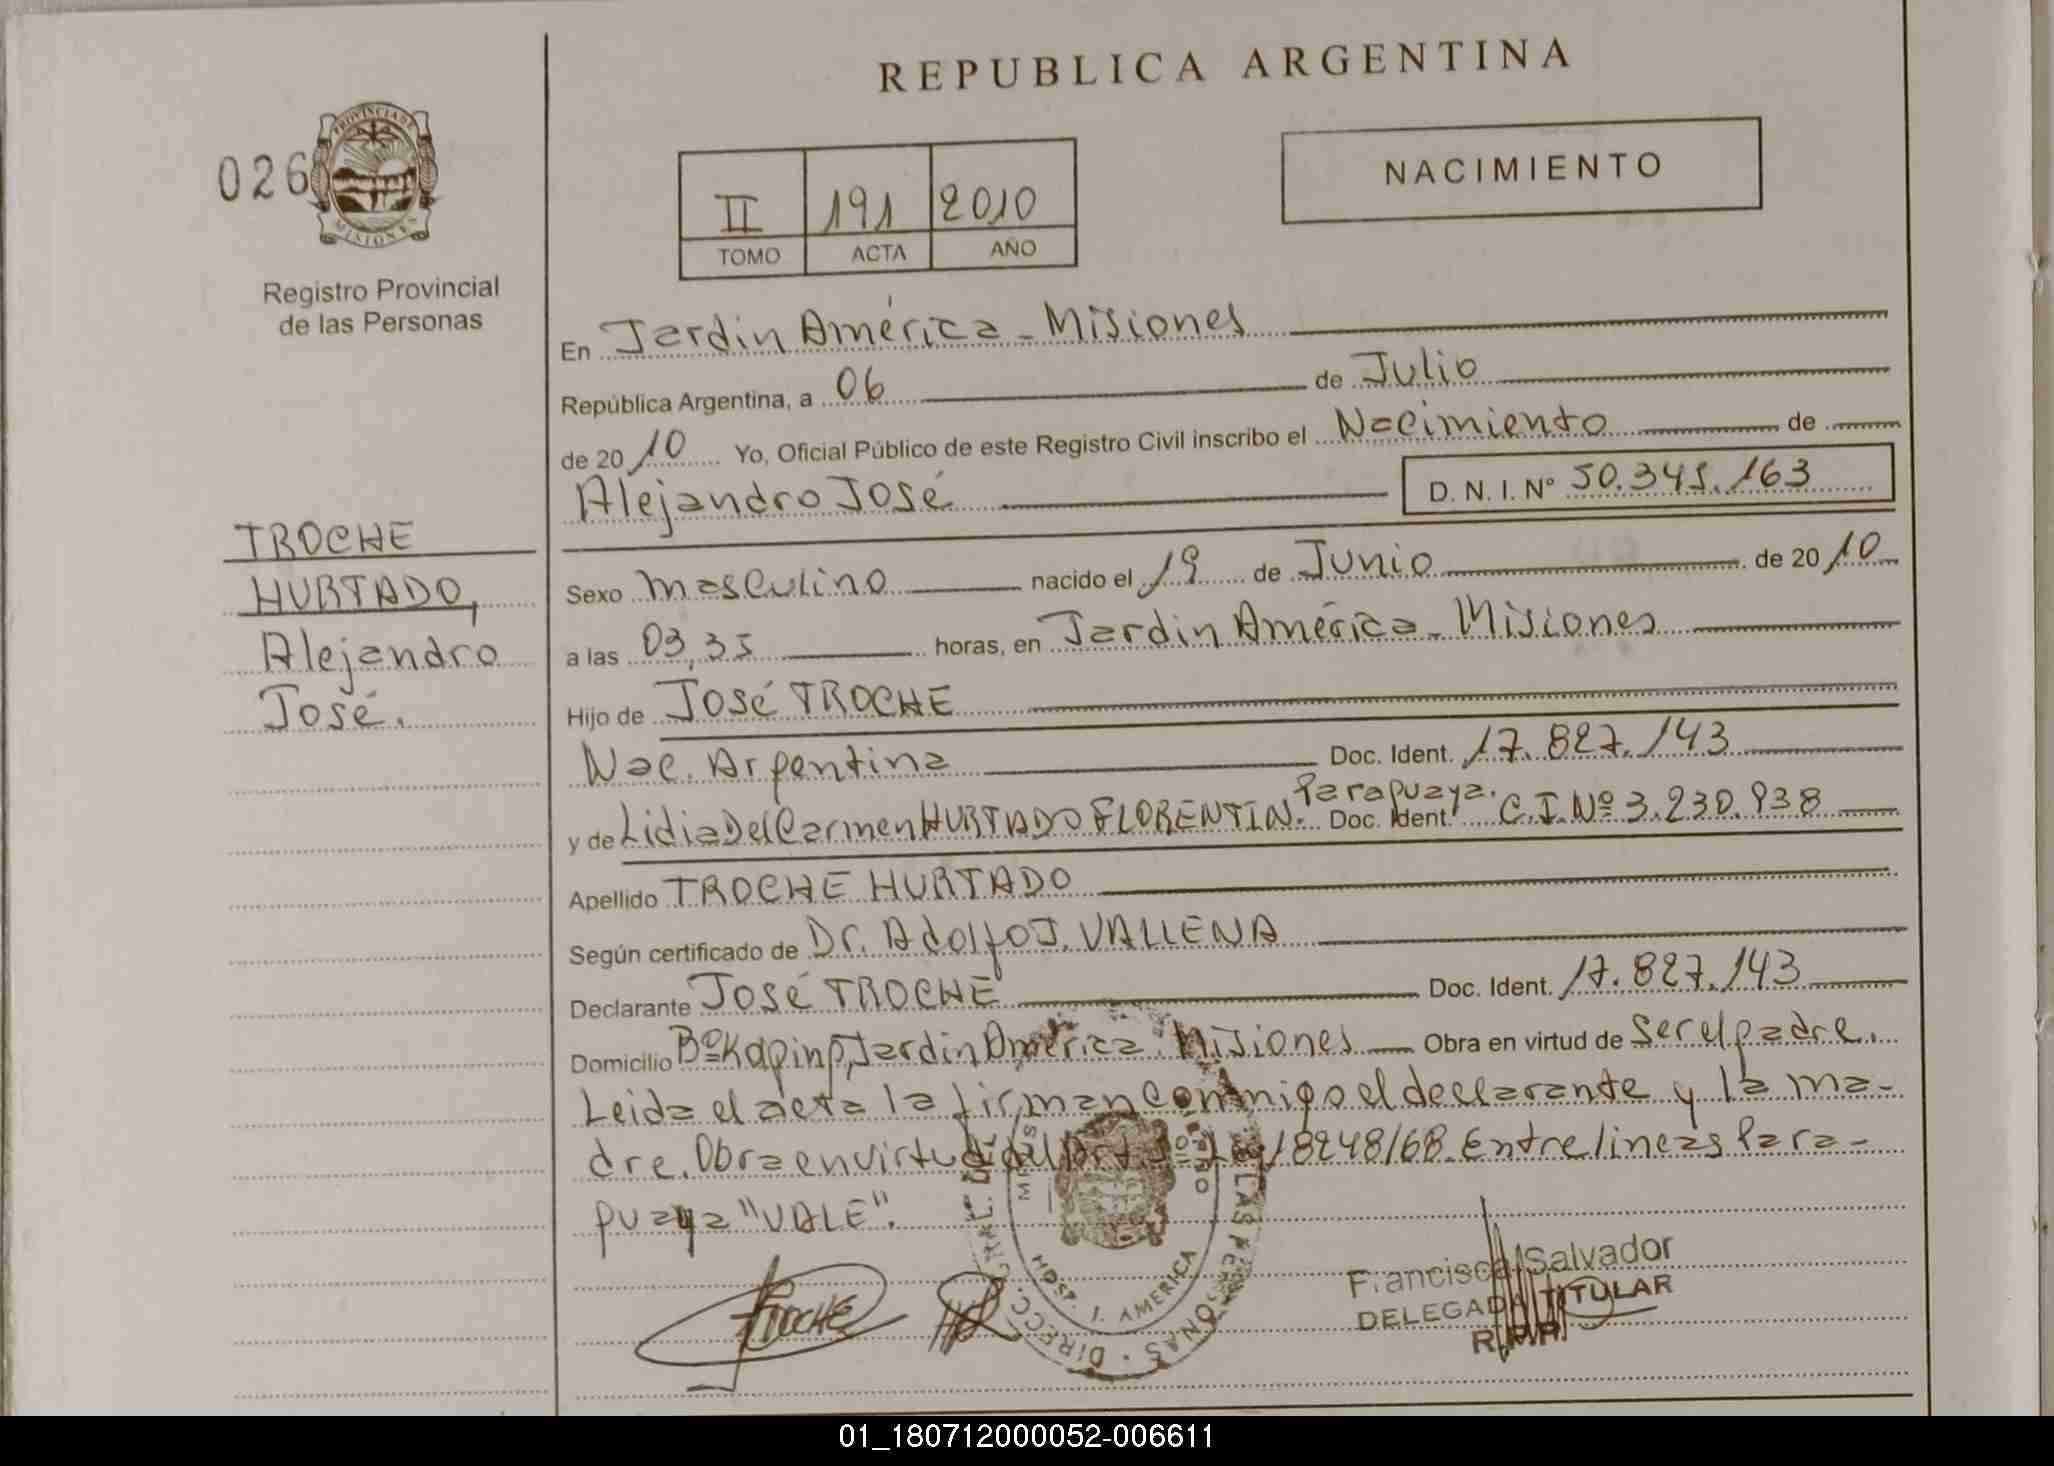 REPUBLICA ARGENTINA
026
PROVINCIA DE
MISIONES
Registro Provincial
de las Personas
II 191 2010
TOMO ACTA AÑO
NACIMIENTO
En Jardin América - Misiones
República Argentina, a 06 de Julio
de 2010 Yo, Oficial Público de este Registro Civil inscribo el Nacimiento de
Alejandro José D. N. I. Nº 50.345.163
TROCHE
HURTADO,
Alejandro
José.
Sexo Masculino nacido el 19 de Junio de 2010
a las 03,35 horas, en Jardin América - Misiones
Hijo de José TROCHE
Nac. Argentina Doc. Ident. 17.827.143
y de Lidia Del Carmen HURTADO FLORENTIN. Paraguaya. Doc. Ident. C.I. Nº 3.230.938
Apellido TROCHE HURTADO
Según certificado de Dr. Adolfo J. VALLENA
Declarante José TROCHE Doc. Ident. 17.827.143
Domicilio Bº Kaping, Jardin América. Misiones Obra en virtud de Ser el padre.
Leida el acta la firman conmigo el declarante y la ma-
dre. Obra en virtud del Art. Ley 18248/68. Entre lineas Para-
guaya "VALE".
TROCHE
DIRECC. GRAL. DE LAS PERSONAS
HOSP. J. AMERICA
Francisca Salvador
DELEGADA TITULAR
R.P.P.
01_180712000052-006611